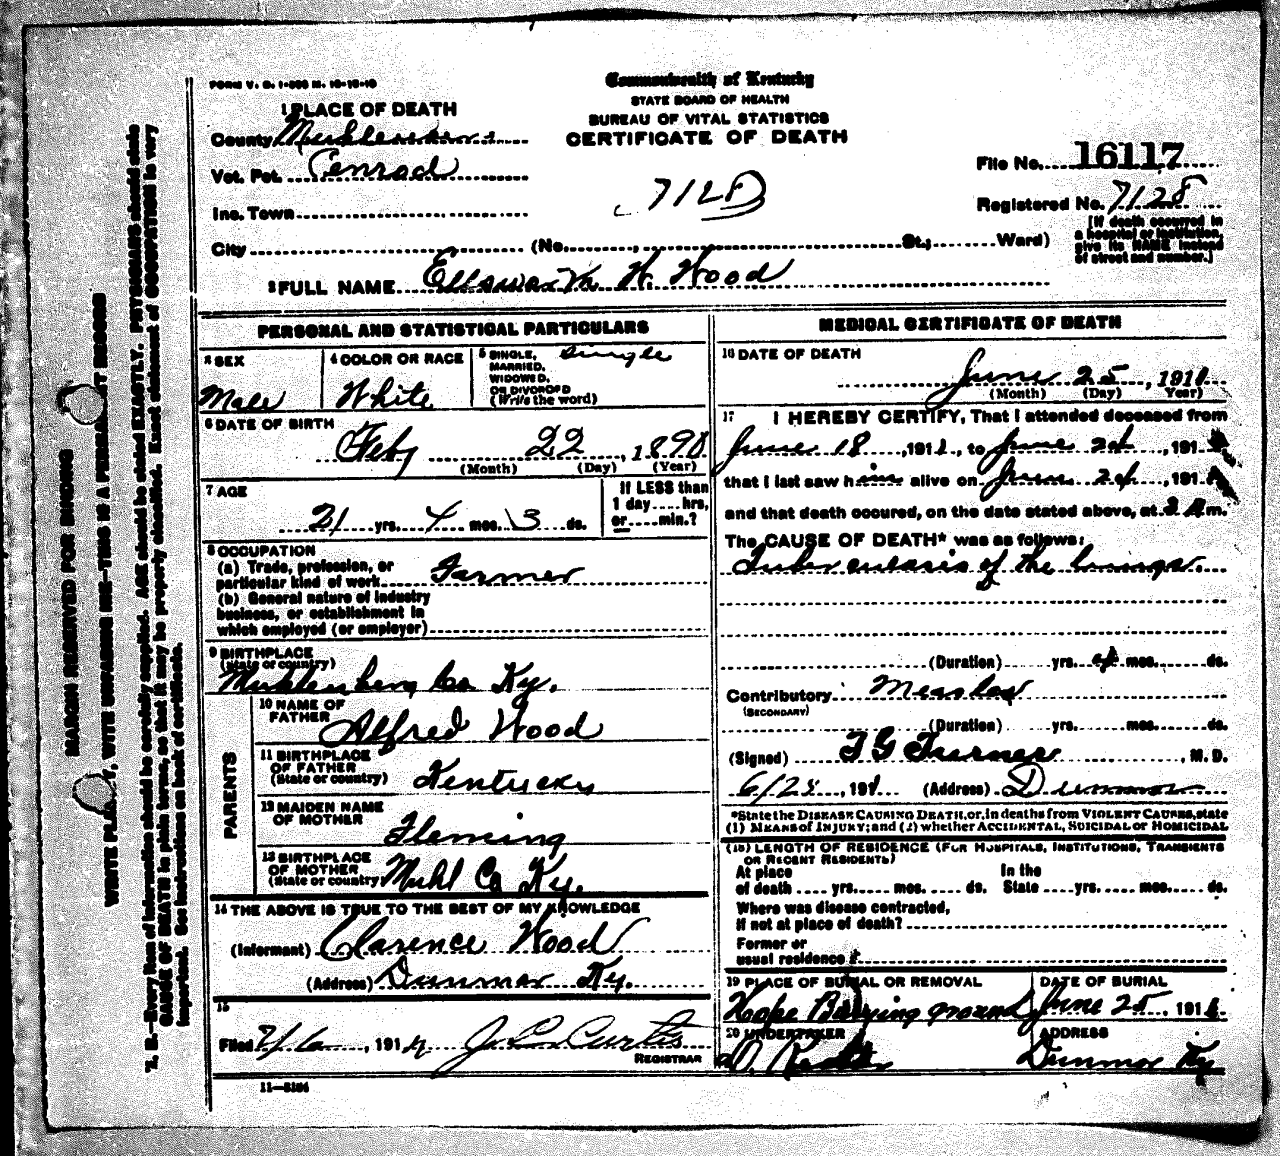 FORM V. S. 1-
Commonwealth of Kentucky
STATE BOARD OF HEALTH
BUREAU OF VITAL STATISTICS
CERTIFICATE OF DEATH
1 PLACE OF DEATH
County
Vot. Pct. Penrod
Inc. Town
City (No. , St.; Ward)
7128
File No. 16117
Registered No. 7128
[If death occurred in
a hospital or institution,
give its NAME instead
of street and number.]
2 FULL NAME H. Wood
PERSONAL AND STATISTICAL PARTICULARS
3 SEX
Male
4 COLOR OR RACE
White
5 SINGLE, Single
MARRIED,
WIDOWED,
OR DIVORCED
(Write the word)
6 DATE OF BIRTH
Feby 22, 1890
(Month) (Day) (Year)
7 AGE
21 yrs. 4 mos. 3 ds.
If LESS than
1 day....hrs,
or....min.?
8 OCCUPATION
(a) Trade, profession, or
particular kind of work Farmer
(b) General nature of industry
business, or establishment in
which employed (or employer)
9 BIRTHPLACE
(State or country)
Muhlenberg Co Ky.
PARENTS
10 NAME OF
FATHER Alfred Wood
11 BIRTHPLACE
OF FATHER
(State or country) Kentucky
12 MAIDEN NAME
OF MOTHER Fleming
13 BIRTHPLACE
OF MOTHER
(State or country) Muhl Co Ky.
14 THE ABOVE IS TRUE TO THE BEST OF MY KNOWLEDGE
(Informant) Clarence Wood
(Address) Dunmor Ky.
15
Filed 7/6, 191 J. L. Curtis
REGISTRAR
11-
MEDICAL CERTIFICATE OF DEATH
16 DATE OF DEATH
June 25, 1911
(Month) (Day) Year)
17 I HEREBY CERTIFY, That I attended deceased from
June 18, 1911, to June 24, 191
that I last saw him alive on June 24, 191
and that death occured, on the date stated above, at 3 A m.
The CAUSE OF DEATH* was as follows:
Tuberculosis of the lungs.
(Duration) yrs. 4 mos. ds.
Contributory Measles
(SECONDARY)
(Duration) yrs. mos. ds.
(Signed) T G Turner, M. D.
6/25, 1911 (Address) Dunmor
*State the DISEASE CAUSING DEATH, or, in deaths from VIOLENT CAUSES, state
(1) MEANS of INJURY; and (2) whether ACCIDENTAL, SUICIDAL or HOMICIDAL
(18) LENGTH OF RESIDENCE (FOR HOSPITALS, INSTITUTIONS, TRANSIENTS
OR RECENT RESIDENTS)
At place In the
of death .... yrs. .... mos. .... ds. State .... yrs. .... mos. .... ds.
Where was disease contracted,
if not at place of death?
Former or
usual residence
19 PLACE OF BURIAL OR REMOVAL
Hope Burying ground
DATE OF BURIAL
June 25, 191
20 UNDERTAKER
ADDRESS
Dunmor Ky
MARGIN RESERVED FOR BINDING
WRITE PLAINLY, WITH UNFADING INK—THIS IS A PERMANENT RECORD
N. B.—Every item of information should be carefully supplied. AGE should be stated EXACTLY. PHYSICIANS should state
CAUSE OF DEATH in plain terms, so that it may be properly classified. Exact statement of OCCUPATION is very
important. See instructions on back of certificate.